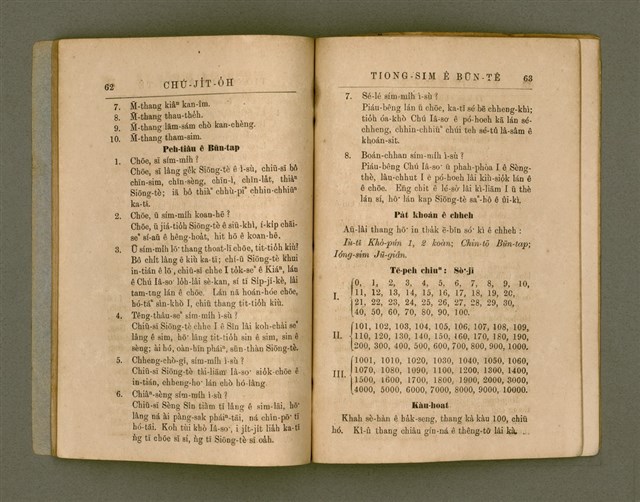 62 CHÚ-JI̍T-O̍H
7. M̄-thang kiâⁿ kan-îm.
8. M̄-thang thau-the̍h.
9. M̄-thang lām-sám chò kan-chèng.
10. M̄-thang tham-sim.
Peh-tiâu ê Būn-tap
1. Chōe, sī sím-mi̍h?
Chōe, sī lâng ge̍k Siōng-tè ê ì-sù, chiū-sī bô
chin-sim, chīn-sèng, chīn-ì, chīn-la̍t, thiàⁿ
Siōng-tè; iā bô thiàⁿ chhù-piⁿ chhin-chhiūⁿ
ka-tī.
2. Chōe, ū sím-mi̍h koan-hē?
Chōe, ū jiá-tio̍h Siōng-tè ê siū-khì, í-ki̍p chāi-
seⁿ sí-āu ê hêng-hoa̍t, hit hō ê koan-hē.
3. Ū sím-mi̍h lō͘ thang thoat-lī chōe, tit-tio̍h kiù?
Bô chi̍t lâng ē kiù ka-tī; chí-ū Siōng-tè khui
in-tián ê lō͘, chiū-sī chhe I to̍k-seⁿ ê Kiáⁿ, lán
ê Chú Iâ-so͘ lo̍h-lâi sè-kan, sí tī Si̍p-jī-kè, lâi
tam-tng lán ê chōe. Lán nā hoán-hóe chōe,
hó-táⁿ sìn-khò I, chiū thang tit-tio̍h kiù.
4. Têng-thâu-seⁿ sím-mi̍h ì-sù?
Chiū-sī Siōng-tè chhe I ê Sîn lâi koh-chài seⁿ
lâng ê sim, hō͘ lâng tit-tio̍h sin ê sim, sin ê
sèng; ài hó, oàn-hīn pháiⁿ, sūn-thàn Siōng-tè.
5. Chheng-chò-gī, sím-mi̍h ì-sù?
Chiū-sī Siōng-tè tāi-liām Iâ-so͘ sio̍k-chōe ê
in-tián, chheng-ho͘ lán chò hó-lâng.
6. Chiâⁿ-sèng sím-mi̍h ì-sù?
Chiū-sī Sèng Sîn tiàm tī lâng ê sim-lāi, hō͘
lâng ná ài pàng-sak pháiⁿ-tāi, ná chìn-pō͘ tī
hó-tāi. Koh tùi khò Iâ-so͘, i ji̍t-ji̍t lia̍h ka-tī
ǹg tī chōe sī sí, ǹg tī Siōng-tè sī oa̍h.
TIONG-SIM Ê BŪN-TÊ 63
7. Sé-lé sím-mi̍h ì-sù?
Piáu-bêng lán ū chōe, ka-tī sé bē chheng-khì;
tio̍h óa-khò Chú Iâ-so͘ ê pó-hoeh kā lán sé-
chheng, chhin-chhiūⁿ chúi teh sé-tû lâ-sâm ê
khoán-sit.
8. Boán-chhan sím-mi̍h ì-sù?
Piáu-bêng Chú Iâ-so͘ ū phah-phòa I ê Sèng-
thé, lâu-chhut I ê pó-hoeh lâi kih-sio̍k lán ê
ê chōe. Èng chit ê lé-sò͘ lâi kì-liām I ū thè
lán sí, hō͘ lán kap Siōng-tè saⁿ-hô ê ûi-kì.
Pa̍t khoán ê chheh
Āu-lâi thang hō͘ in tha̍k ē-bīn só͘ kì ê chheh:
Iù-tī Khò-pún 1, 2 koàn; Chin-tō Būn-tap;
Ióng-sim Jū-giân.
Tē-peh chiuⁿ: Sò͘-jī
I. {0, 1, 2, 3, 4, 5, 6, 7, 8, 9, 10,
11, 12, 13, 14, 15, 16, 17, 18, 19, 20,
21, 22, 23, 24, 25, 26, 27, 28, 29, 30,
40, 50, 60, 70, 80, 90, 100.
II. {101, 102, 103, 104, 105, 106, 107, 108, 109,
110, 120, 130, 140, 150, 160, 170, 180, 190,
200, 300, 400, 500, 600, 700, 800, 900, 1000.
III. {1001, 1010, 1020, 1030, 1040, 1050, 1060,
1070, 1080, 1090, 1100, 1200, 1300, 1400,
1500, 1600, 1700, 1800, 1900, 2000, 3000,
4000, 5000, 6000, 7000, 8000, 9000, 10000.
Kàu-hoat
Khah sè-hàn ê ha̍k-seng, thang kà kàu 100, chiū
hó. Kî-û thang chiàu gín-ná ê thêng-tō͘ lâi kà.